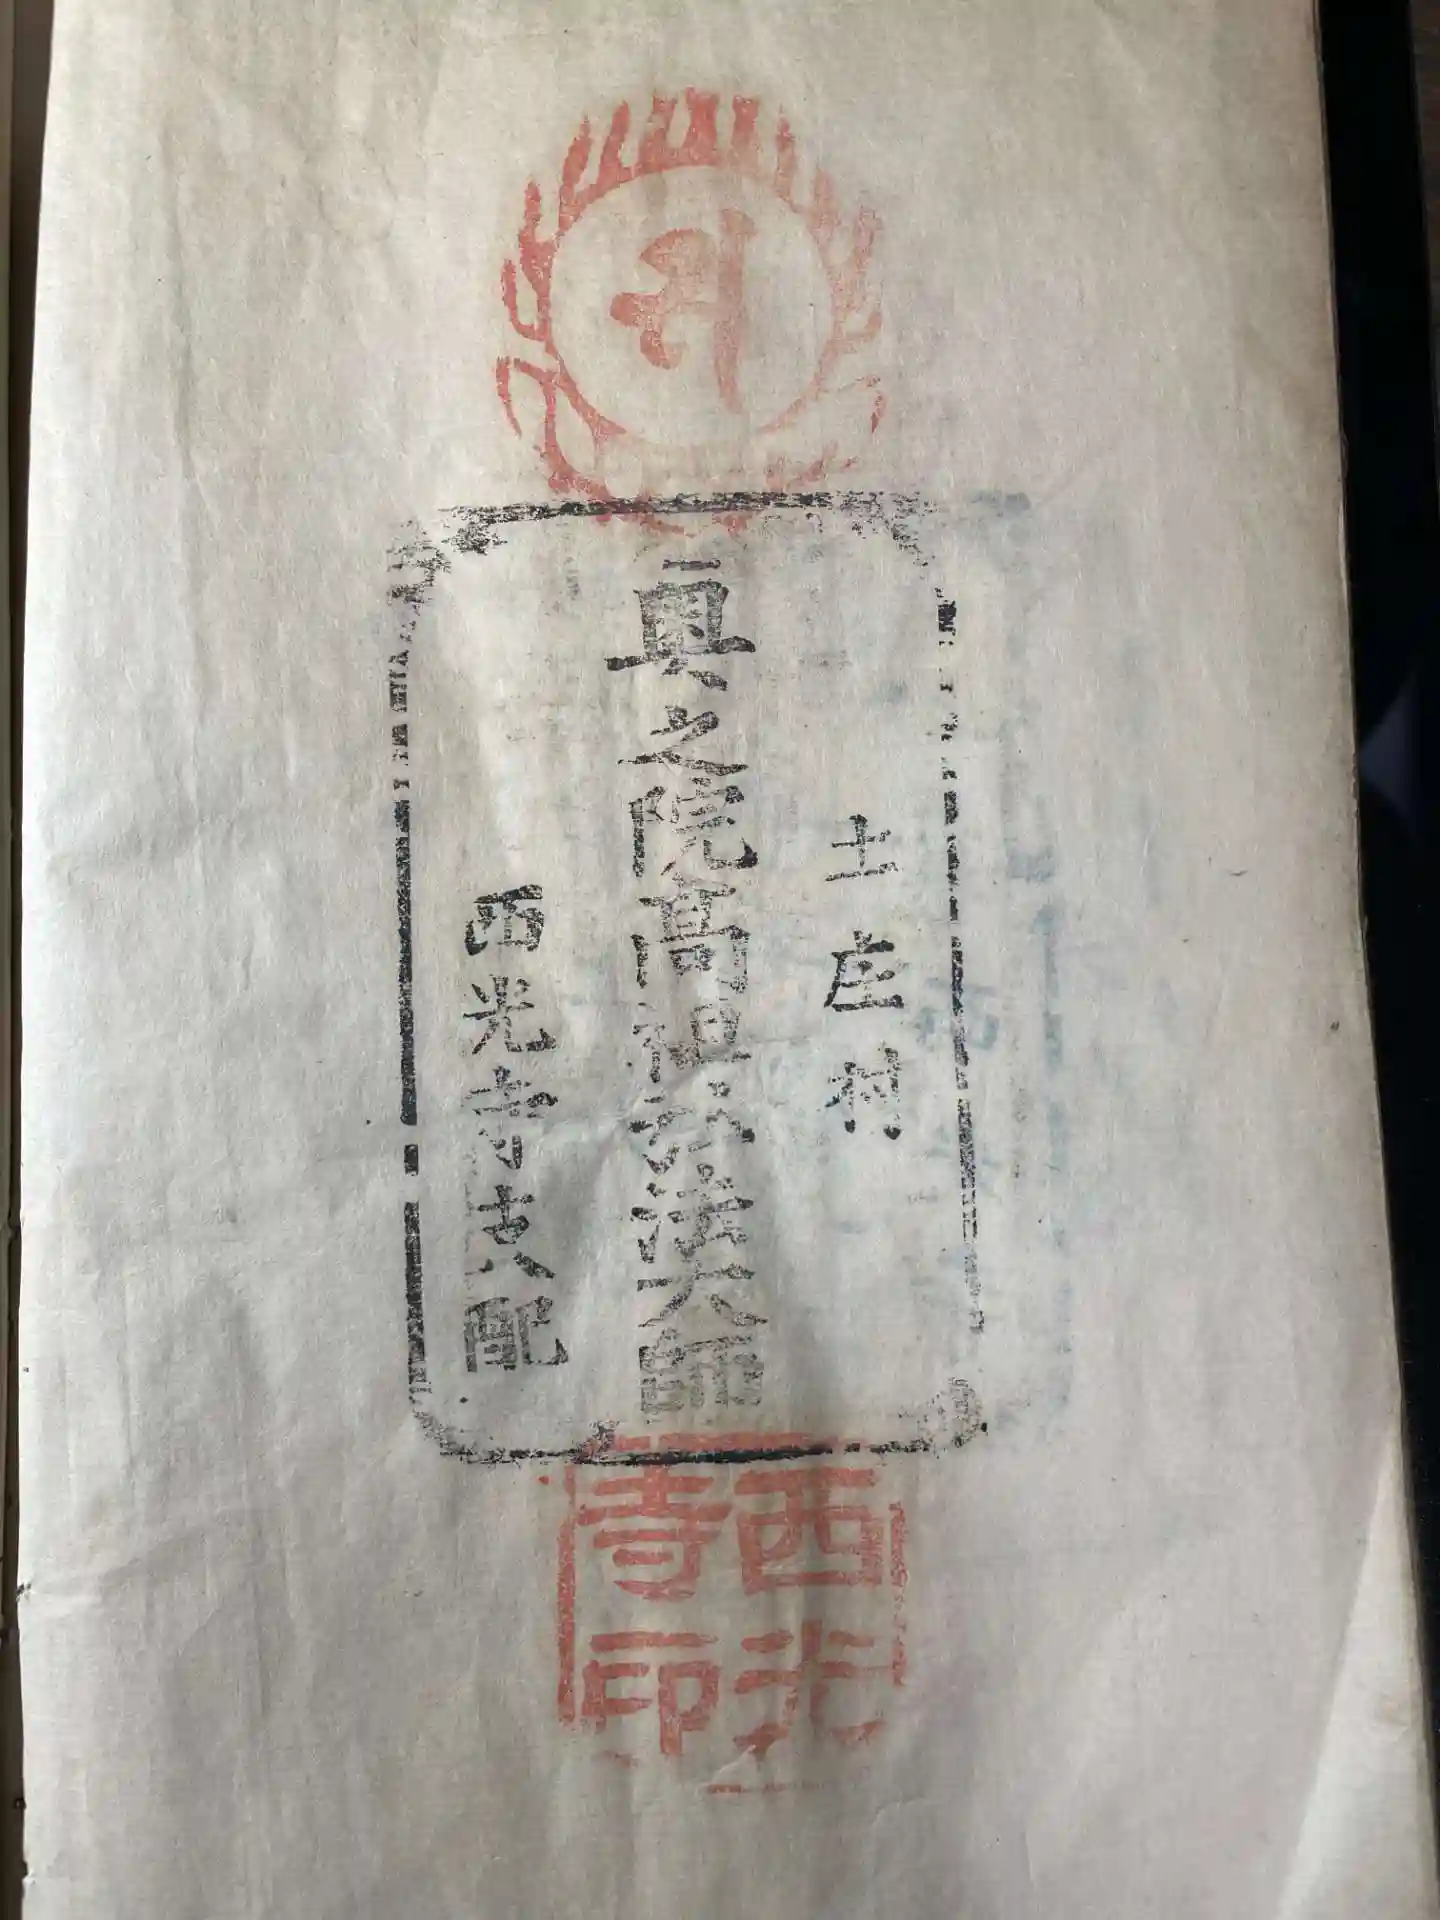 土庄村
奥之院高祖弘法大師
西光寺支配
西光
寺印